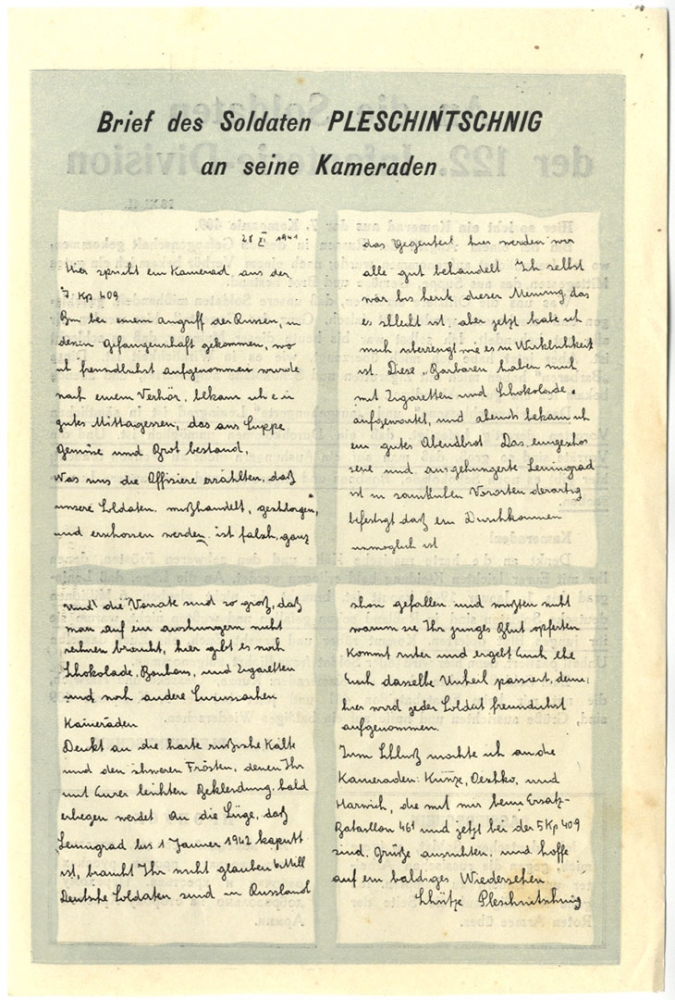 Brief des Soldaten PLESCHINTSCHNIG
an seine Kameraden
28 XI 1941
Hier spricht ein Kamerad aus der
7 Kp 409
Bin bei einem Angriff der Russen, in
deren Gefangenschaft gekommen, wo
ich freundlichst aufgenommen wurde
nach einem Verhör, bekam ich ein
gutes Mittagessen, das aus Suppe
Gemüse und Brot bestand.
Was uns die Offiziere erzählten, daß
unsere Soldaten mißhandelt, geschlagen,
und erschossen werden, ist falsch, ganz
das Gegenteil, hier werden wir
alle gut behandelt Ich selbst
war bis heute dieser Meinung das
es schlecht ist, aber jetzt habe ich
mich überzeugt wie es in Wirklichkeit
ist. Diese „Barbaren haben mich
mit Zigaretten und Schokolade
aufgewartet, und abends bekam ich
ein gutes Abendbrot Das eingeschos
sene und ausgehungerte Leningrad
ist in sämtlichen Vororten derartig
befestigt daß ein Durchkommen
unmöglich ist
und die Vorräte sind so groß, daß
man auf ein aushungern nicht
rechnen braucht, hier gibt es noch
Schokolade, Bonbons, und Zigaretten
und noch andere Luxussachen
Kameraden
Denkt an die harte rußische Kälte
und den schweren Frösten, denen Ihr
mit Eurer leichten Bekleidung bald
erliegen werdet An die Lüge, daß
Leningrad bis 1 Januar 1942 kaputt
ist, braucht Ihr nicht glauben
Deutsche Soldaten sind in Russland
schon gefallen und wußten nicht
warum sie Ihr junges Blut opferten
Kommt rüber und ergebt Euch ehe
Euch dasselbe Unheil passiert, denn
hier wird jeder Soldat freundlichst
aufgenommen.
Zum Schluß möchte ich an die
Kameraden: Kunze, und
Harwich, die mit mir beim Ersatz-
Bataillon 461 und jetzt bei der 5 Kp 409
sind, Grüße ausrichten, und hoffe
auf ein baldiges Wiedersehen.
Schütze Pleschintschnig